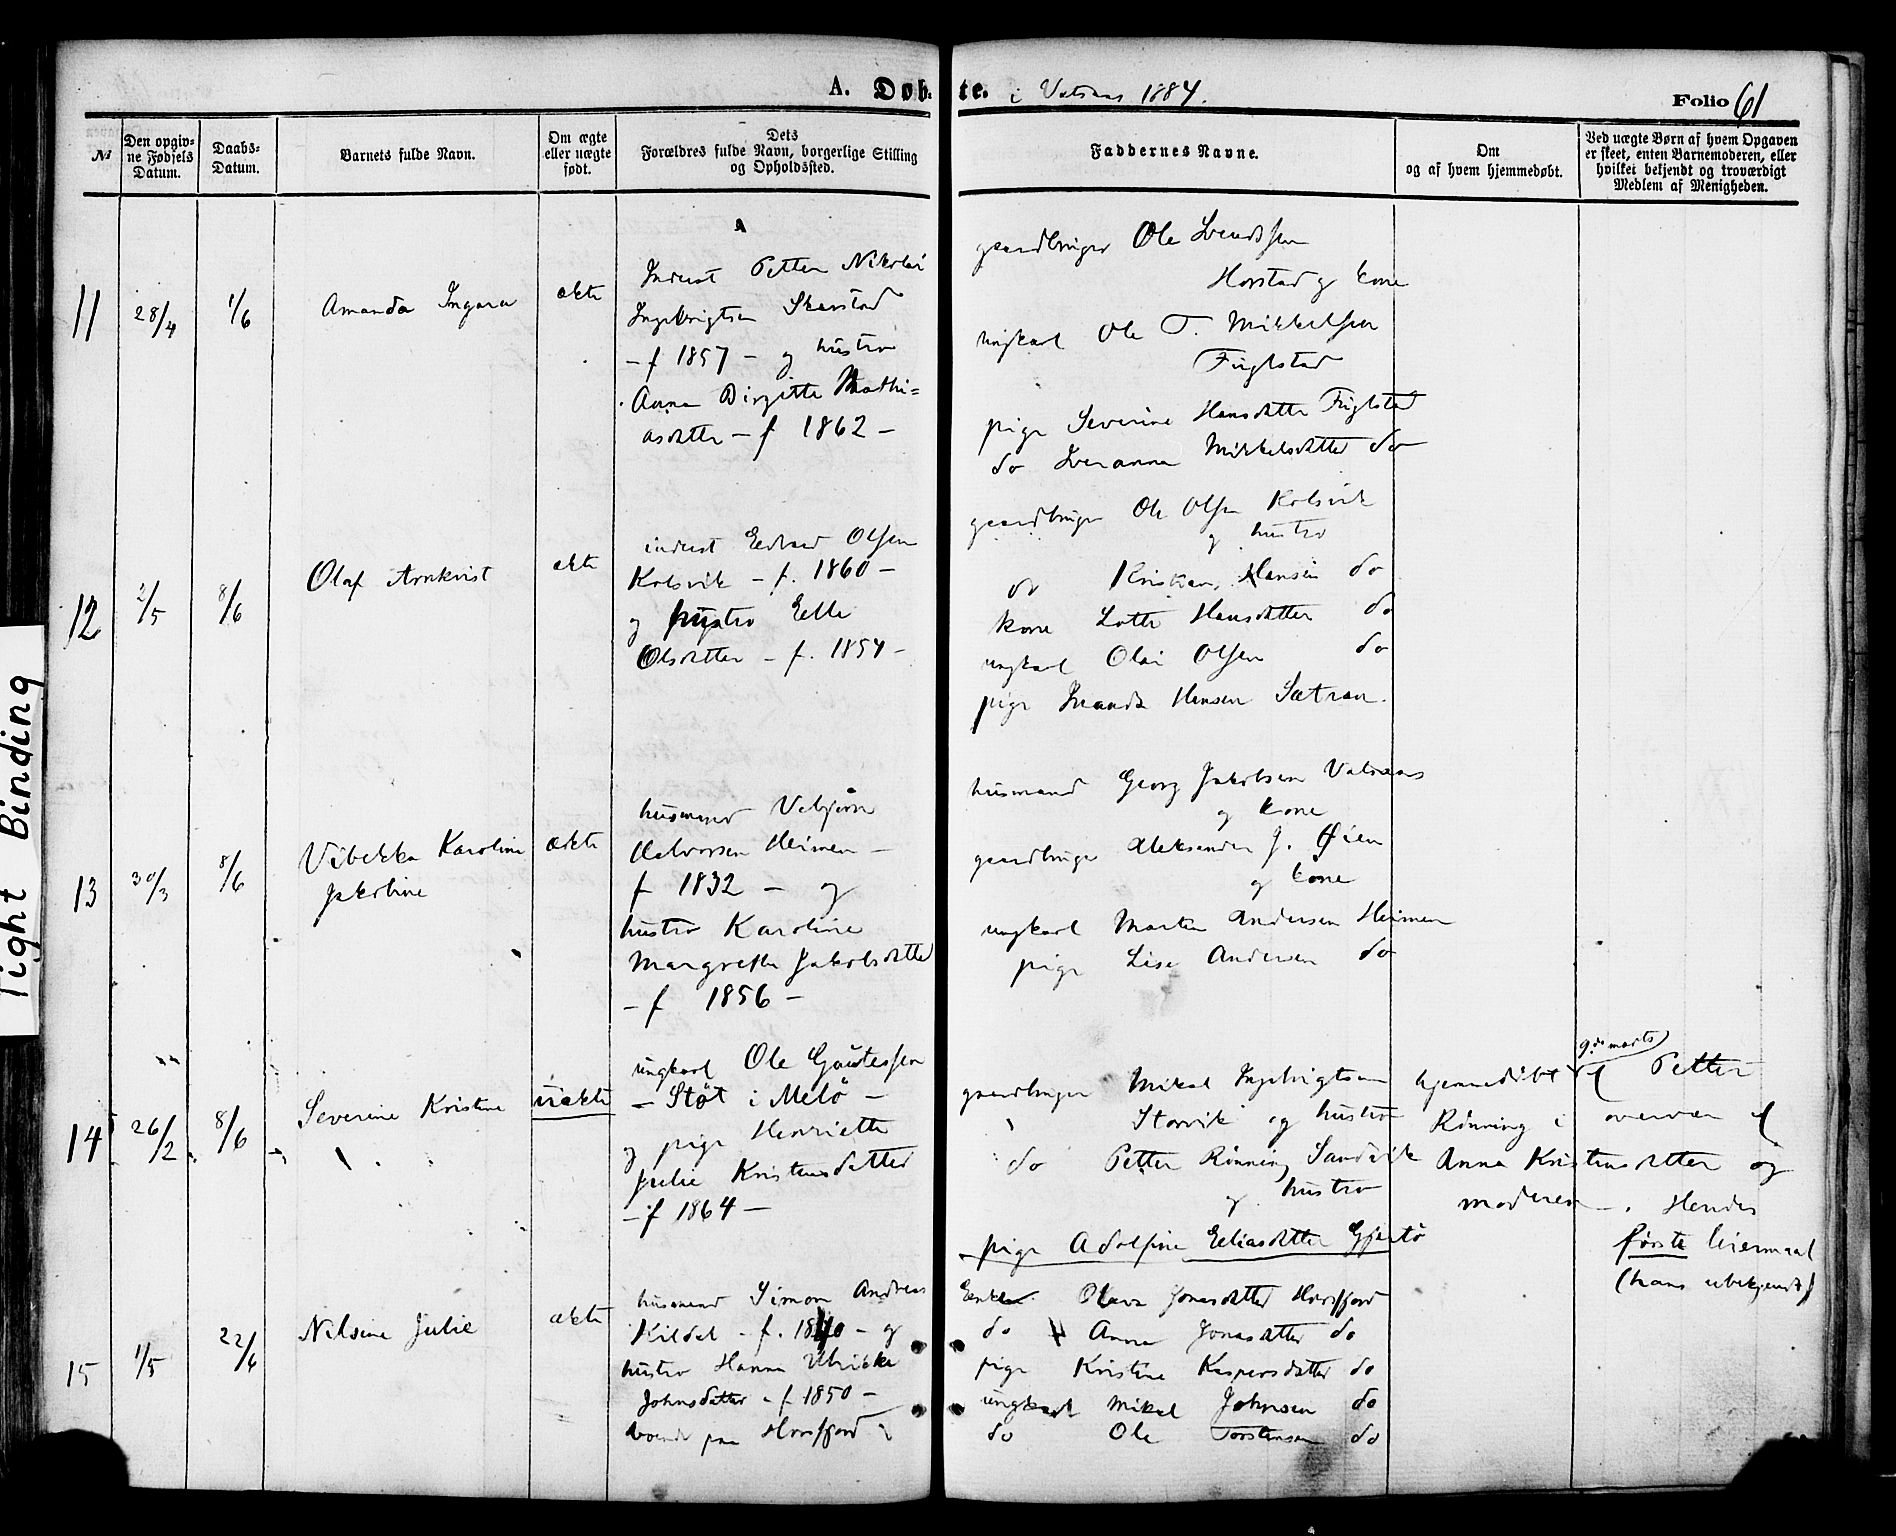 A. Døbte. i Valnæs 1884.
Folio 61
№
Den opgivne Fødsels Datum.
Daabs-Datum.
Barnets fulde Navn.
Om ægte eller uægte født.
Dets Forældres fulde Navn, borgerlige Stilling og Opholdssted.
Faddernes Navne.
Om og af hvem hjemmedøbt.
Ved uægte Børn af hvem Opgaven er skeet, enten Barnemoderen, eller hvilket bekjendt og troværdigt Medlem af Menigheden.
11
28/4
1/6
Amanda Ingara
ækte
Inderst Petter Nikolai
Ingebrigtsen Skarstad
- f 1857 - og hustro
Anna Birgitte Mathi=
asdtter - f 1862 -
gaardbruger Ole Svendssen
Horstad og kone
ungkarl Ole T. Mikkelsen
Fuglstad
pige Severine Hansdatter Fuglstad
do Iveranna Mikkelsdatter do
12
2/5
8/6
Olaf Arnkvist
ækte
inderst Edvard Olsen
Kolsvik - f. 1860 -
og hustro Elle
Olsdatter - f. 1854 -
gaardbruger Ole Olsen Kolsvik
og hustro
do Kristian Hansen do
kone Lotte Hansdatter do
ungkarl Olai Olsen do
pige Hansen Sætran.
13
30/3
8/6
Vibekka Karoline
Jakobine
ækte
husmand Vebjørn
Halvorsen Heimen -
f 1832 - og
hustro Karoline
Margrethe Jakobsdatter
- f 1856 -
husmand Georg Jakobsen Valnæs
og kone
gaardbruger Aleksander J. Øien
og kone
ungkarl Martin Andersen Heimen
pige Lise Andersen do
14
26/2
8/6
Severine Kristine
uækte
ungkarl Ole Gautessen
- Støt i Melö -
og pige Henriette
Julie Kristensdatter
- f 1864 -
gaardbruger Mikal Ingebrigtsen
Storvik og hustro
do Petter Rönning Sandvik
og hustro
pige Adolfine Eliasdatter Gjertö
9de marts
hjemmedöbt af Petter
Rönning i overvær af
Anna Kristensdatter og
moderen -. Hendes
første leiermaal
(hans ubekjendt)
15
1/5
22/6
Nilsine Julie
ækte
husmand Simon Andreas
Kildal - f. 1840 - og
hustro Hanna Ulrikke
Johnsdatter - f 1850 -
boende paa Horsfjord
Enke Olava Jonasdatter Horsfjord
do Anna Jonasdatter do
pige Kristine Kaspersdatter do
ungkarl Mikal Johnsen do
do Ole Torstensen do
Tight Binding